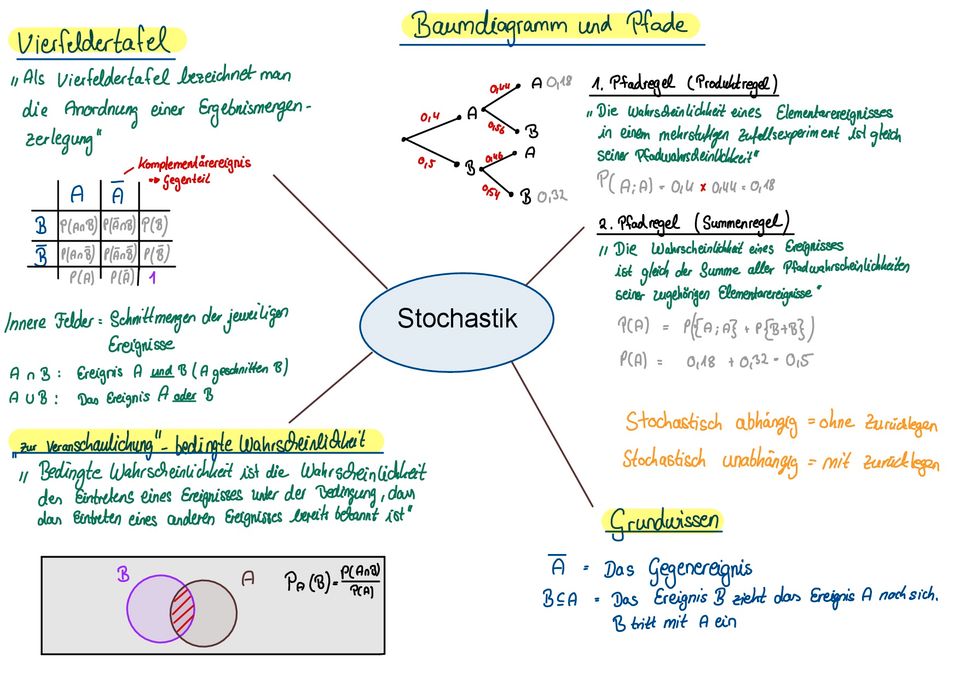 Vierfeldertafel
„Als Vierfeldertafel bezeichnet man
die Anordnung einer Ergebnismengen-
zerlegung"
Komplementärereignis
→ Gegenteil
A Ā
B P(A∩B) P(Ā∩B) P(B)
B̄ P(A∩B̄) P(Ā∩B̄) P(B̄)
P(A) P(Ā) 1
Innere Felder = Schnittmengen der jeweiligen
Ereignisse
A ∩ B : Ereignis A und B (A geschnitten B)
A ∪ B : Das Ereignis A oder B
"zur Veranschaulichung" - bedingte Wahrscheinlichkeit
„Bedingte Wahrscheinlichkeit ist die Wahrscheinlichkeit
des Eintretens eines Ereignisses unter der Bedingung, dass
das Eintreten eines anderen Ereignisses bereits bekannt ist"
B A P_A(B) = P(A∩B)/P(A)
Stochastik
Baumdiagramm und Pfade
0,44 A 0,18
0,4 A
0,56 B
0,46 A
0,5 B
0,54 B 0,32
1. Pfadregel (Produktregel)
„Die Wahrscheinlichkeit eines Elementarereignisses
in einem mehrstufigen Zufallsexperiment ist gleich
seiner Pfadwahrscheinlichkeit"
P(A;A) = 0,4 × 0,44 = 0,18
2. Pfadregel (Summenregel)
„Die Wahrscheinlichkeit eines Ereignisses
ist gleich der Summe aller Pfadwahrscheinlichkeiten
seiner zugehörigen Elementarereignisse"
P(A) = P({A;A} + P{B+B})
P(A) = 0,18 + 0,32 = 0,5
Stochastisch abhängig = ohne Zurücklegen
Stochastisch unabhängig = mit zurücklegen
Grundwissen
Ā = Das Gegenereignis
B⊆A = Das Ereignis B zieht das Ereignis A nach sich.
B tritt mit A ein